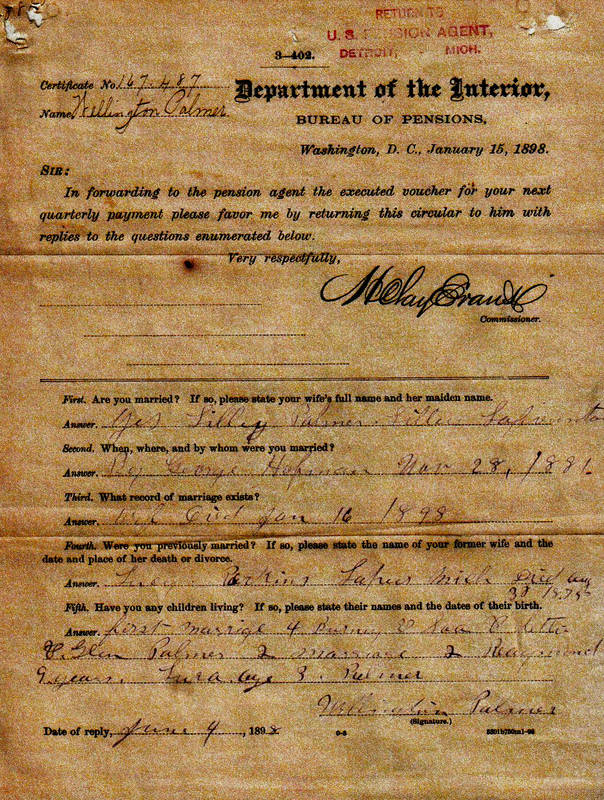 RETURN TO
U. S. PENSION AGENT,
DETROIT, MICH.
3-402.
Certificate No. 167.487
Department of the Interior,
Name, Wellington Palmer
BUREAU OF PENSIONS,
Washington, D. C., January 15, 1898.
SIR:
In forwarding to the pension agent the executed voucher for your next
quarterly payment please favor me by returning this circular to him with
replies to the questions enumerated below.
Very respectfully,
H Clay Evans
Commissioner.
First. Are you married? If so, please state your wife's full name and her maiden name.
Answer. Yes Palmer
Second. When, where, and by whom were you married?
Answer. George Hofman Nov 28, 1886
Third. What record of marriage exists?
Answer. Died Jan 16 1898
Fourth. Were you previously married? If so, please state the name of your former wife and the
date and place of her death or divorce.
Answer. Perkins Mich Died Aug
30 1875
Fifth. Have you any children living? If so, please state their names and the dates of their birth.
Answer. first marrige 4 Burney
Glen Palmer 2 marriage 2 Raymond
9 years. age 3. Palmer
Wellington Palmer
(Signature.)
Date of reply, June 4, 1898